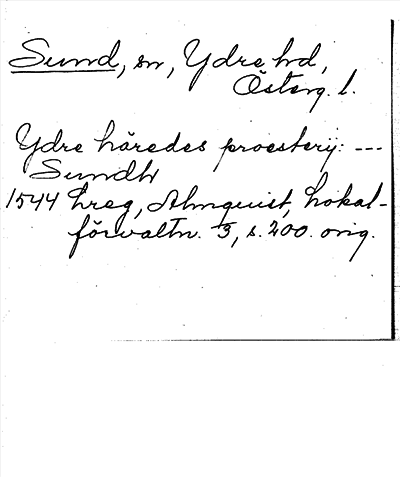 Sund, sn, Ydre hd,
Österg. l.
Ydre häredes proesterij: ---
Sundh
1544 hreg, Almquist, Lokal-
förvaltn. 3, s. 200. orig.